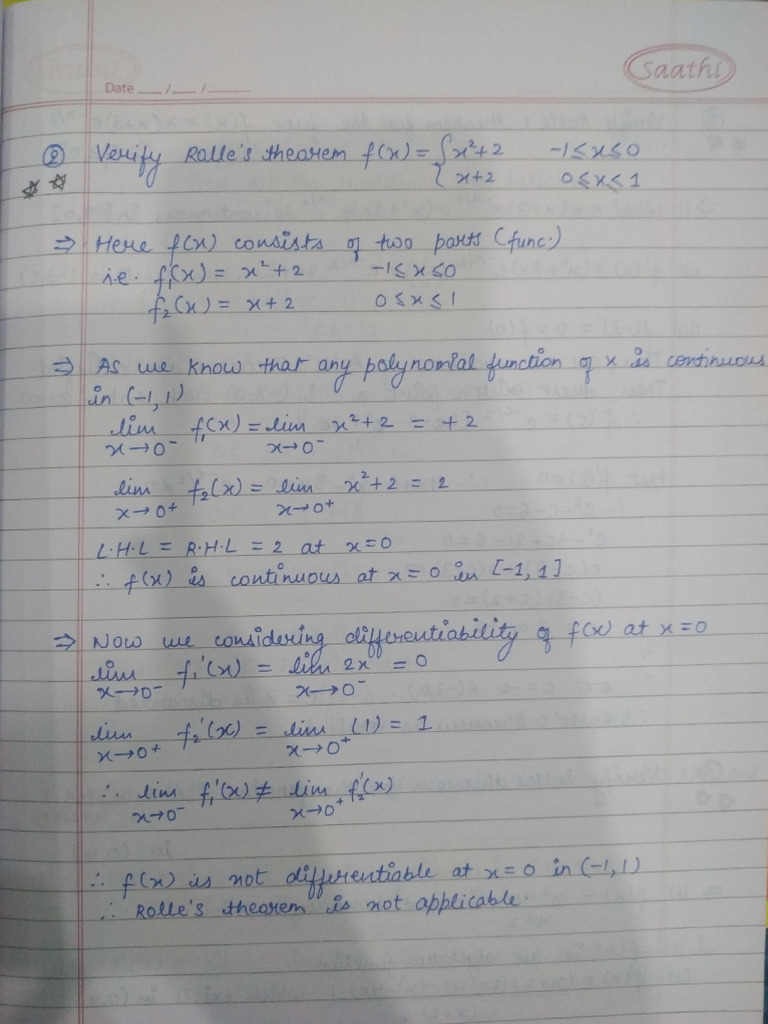 Saathi
Date ___/___/_____
② Verify Rolle's theorem f(x) = { x²+2    -1≤x≤0
x+2    0≤x≤1
⇒ Here f(x) consists of two parts (func.)
i.e. f₁(x) = x²+2    -1≤x≤0
f₂(x) = x+2    0≤x≤1
⇒ As we know that any polynomial function of x is continuous
in (-1,1)
lim x→0⁻ f₁(x) = lim x→0⁻ x²+2 = +2
lim x→0⁺ f₂(x) = lim x→0⁺ x²+2 = 2
L.H.L = R.H.L = 2 at x=0
∴ f(x) is continuous at x=0 in [-1,1]
⇒ Now we considering differentiability of f(x) at x=0
lim x→0⁻ f₁'(x) = lim x→0⁻ 2x = 0
lim x→0⁺ f₂'(x) = lim x→0⁺ (1) = 1
∴ lim x→0⁻ f₁'(x) ≠ lim x→0⁺ f₂'(x)
∴ f(x) is not differentiable at x=0 in (-1,1)
∴ Rolle's theorem is not applicable.